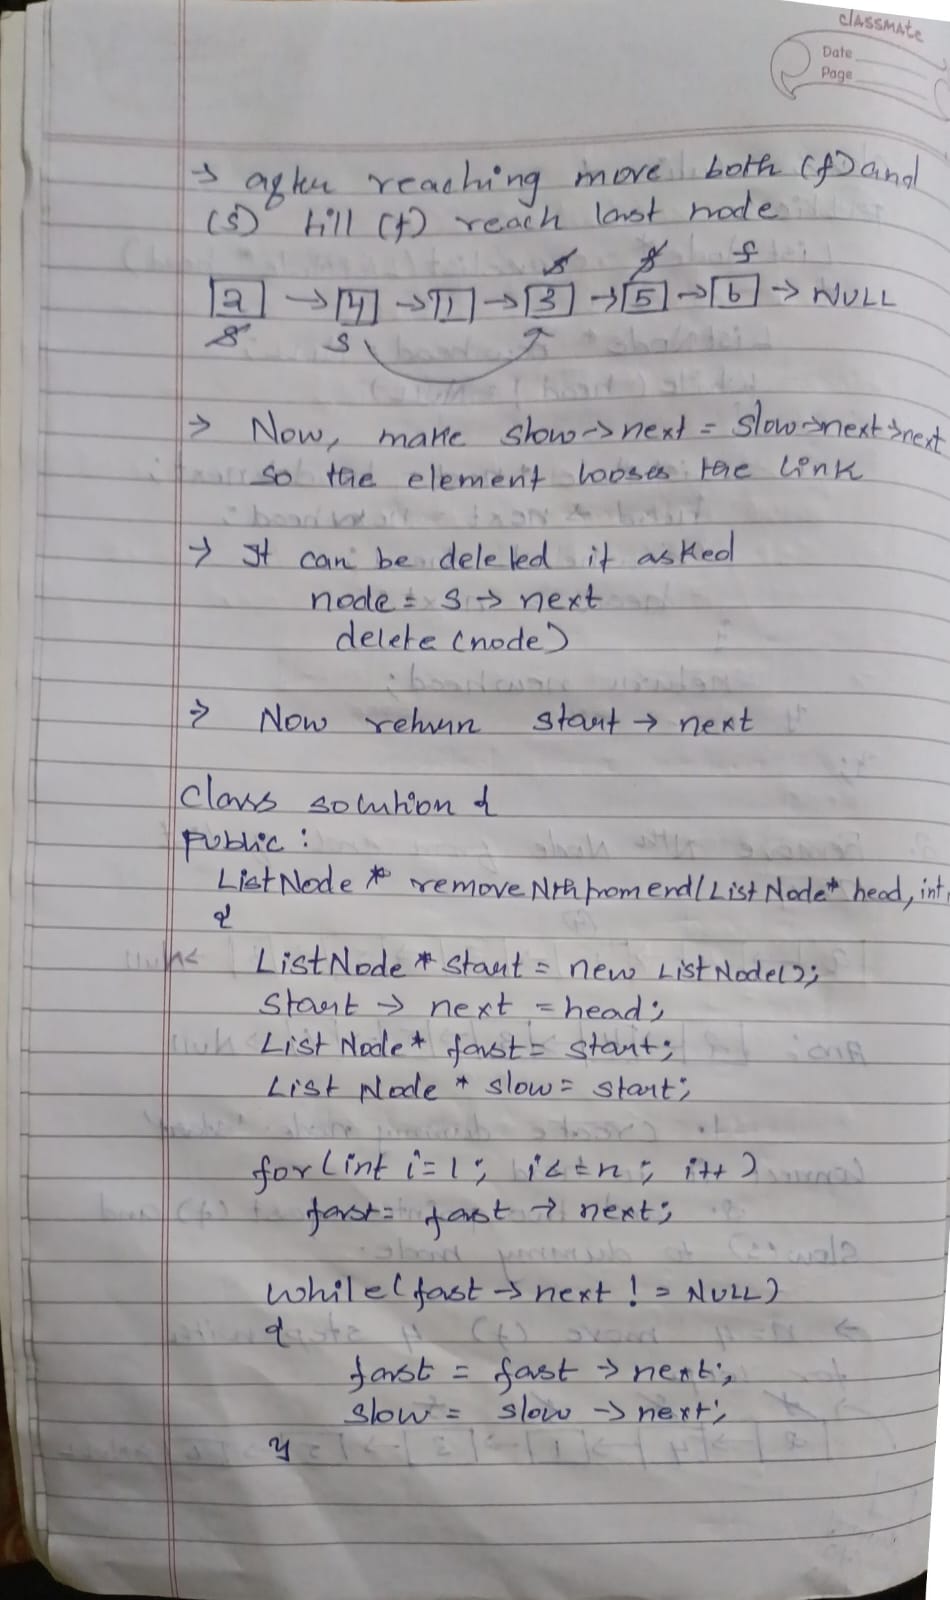 classmate
Date
Page
→ after reaching move both (f) and
(s) till (f) reach last node
s f f
2 → 4 → 1 → 3 → 5 → 6 → NULL
s s
→ Now, make slow→next = slow→next→next
so the element looses the link
→ It can be deleted if asked
node = s → next
delete (node)
→ Now return start → next
Class solution {
Public :
ListNode * removeNthfromend(ListNode* head, int
{
ListNode * start = new ListNode();
start → next = head;
List Node* fast = start;
List Node * slow = start;
for (int i=1; i<=n; i++)
fast = fast → next;
while(fast → next != NULL)
{
fast = fast → next;
slow = slow → next;
}